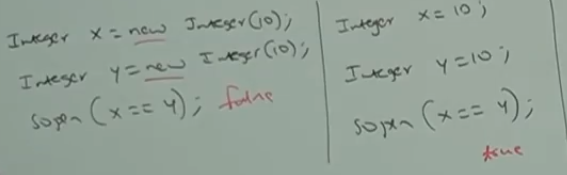 Integer x = new Integer(10);
Integer y = new Integer(10);
sopln (x == y); false
Integer x = 10;
Integer y = 10;
sopln (x == y);
true